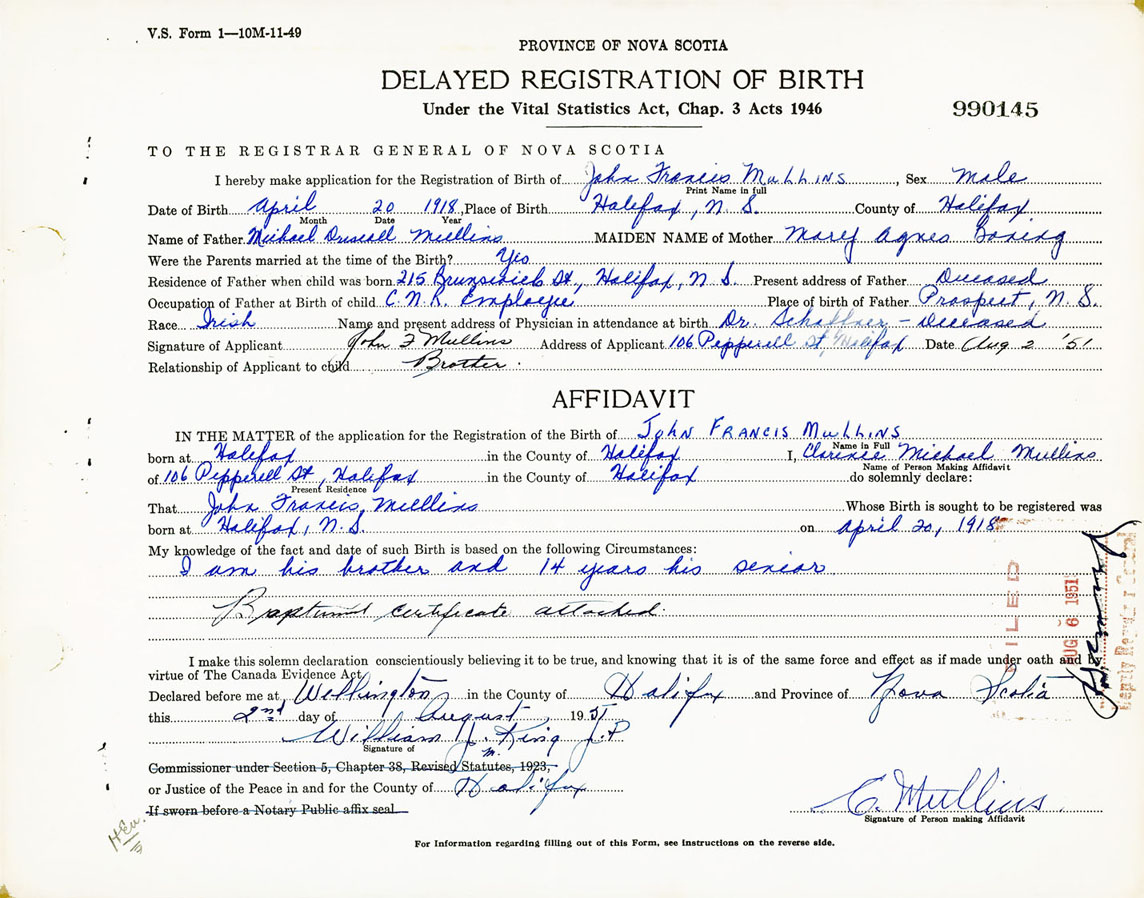 V.S. Form 1—10M-11-49
PROVINCE OF NOVA SCOTIA
DELAYED REGISTRATION OF BIRTH
Under the Vital Statistics Act, Chap. 3 Acts 1946
990145
TO THE REGISTRAR GENERAL OF NOVA SCOTIA
I hereby make application for the Registration of Birth of John Francis Mullins, Sex Male
Print Name in full
Date of Birth April 20 1918, Place of Birth Halifax, N. S. County of Halifax
Month Date Year
Name of Father Michael Driscoll Mullins MAIDEN NAME of Mother Mary Agnes
Were the Parents married at the time of the Birth? Yes
Residence of Father when child was born 215 Brunswick St., Halifax, N. S. Present address of Father Deceased
Occupation of Father at Birth of child C.N.R. Employee Place of birth of Father Prospect, N. S.
Race Irish Name and present address of Physician in attendance at birth Dr. Schaffner - Deceased
Signature of Applicant John F Mullins Address of Applicant 106 Pepperell St, Halifax Date Aug 2 '51
Relationship of Applicant to child Brother
AFFIDAVIT
IN THE MATTER of the application for the Registration of the Birth of John Francis Mullins
Name in Full
born at Halifax in the County of Halifax I, Clarence Michael Mullins
Name of Person Making Affidavit
of 106 Pepperell St, Halifax in the County of Halifax do solemnly declare:
Present Residence
That John Francis Mullins Whose Birth is sought to be registered was
born at Halifax, N.S. on April 20, 1918
My knowledge of the fact and date of such Birth is based on the following Circumstances:
I am his brother and 14 years his senior
Baptismal certificate attached.
FILED
AUG 6 1951
Deputy Registrar General
I make this solemn declaration conscientiously believing it to be true, and knowing that it is of the same force and effect as if made under oath and by
virtue of The Canada Evidence Act.
Declared before me at Wellington in the County of Halifax and Province of Nova Scotia
this 2nd day of August, 1951
William M. King J.P
Signature of
Commissioner under Section 5, Chapter 38, Revised Statutes, 1923,
or Justice of the Peace in and for the County of Halifax
If sworn before a Notary Public affix seal
C. Mullins
Signature of Person making Affidavit
For Information regarding filling out of this Form, see instructions on the reverse side.